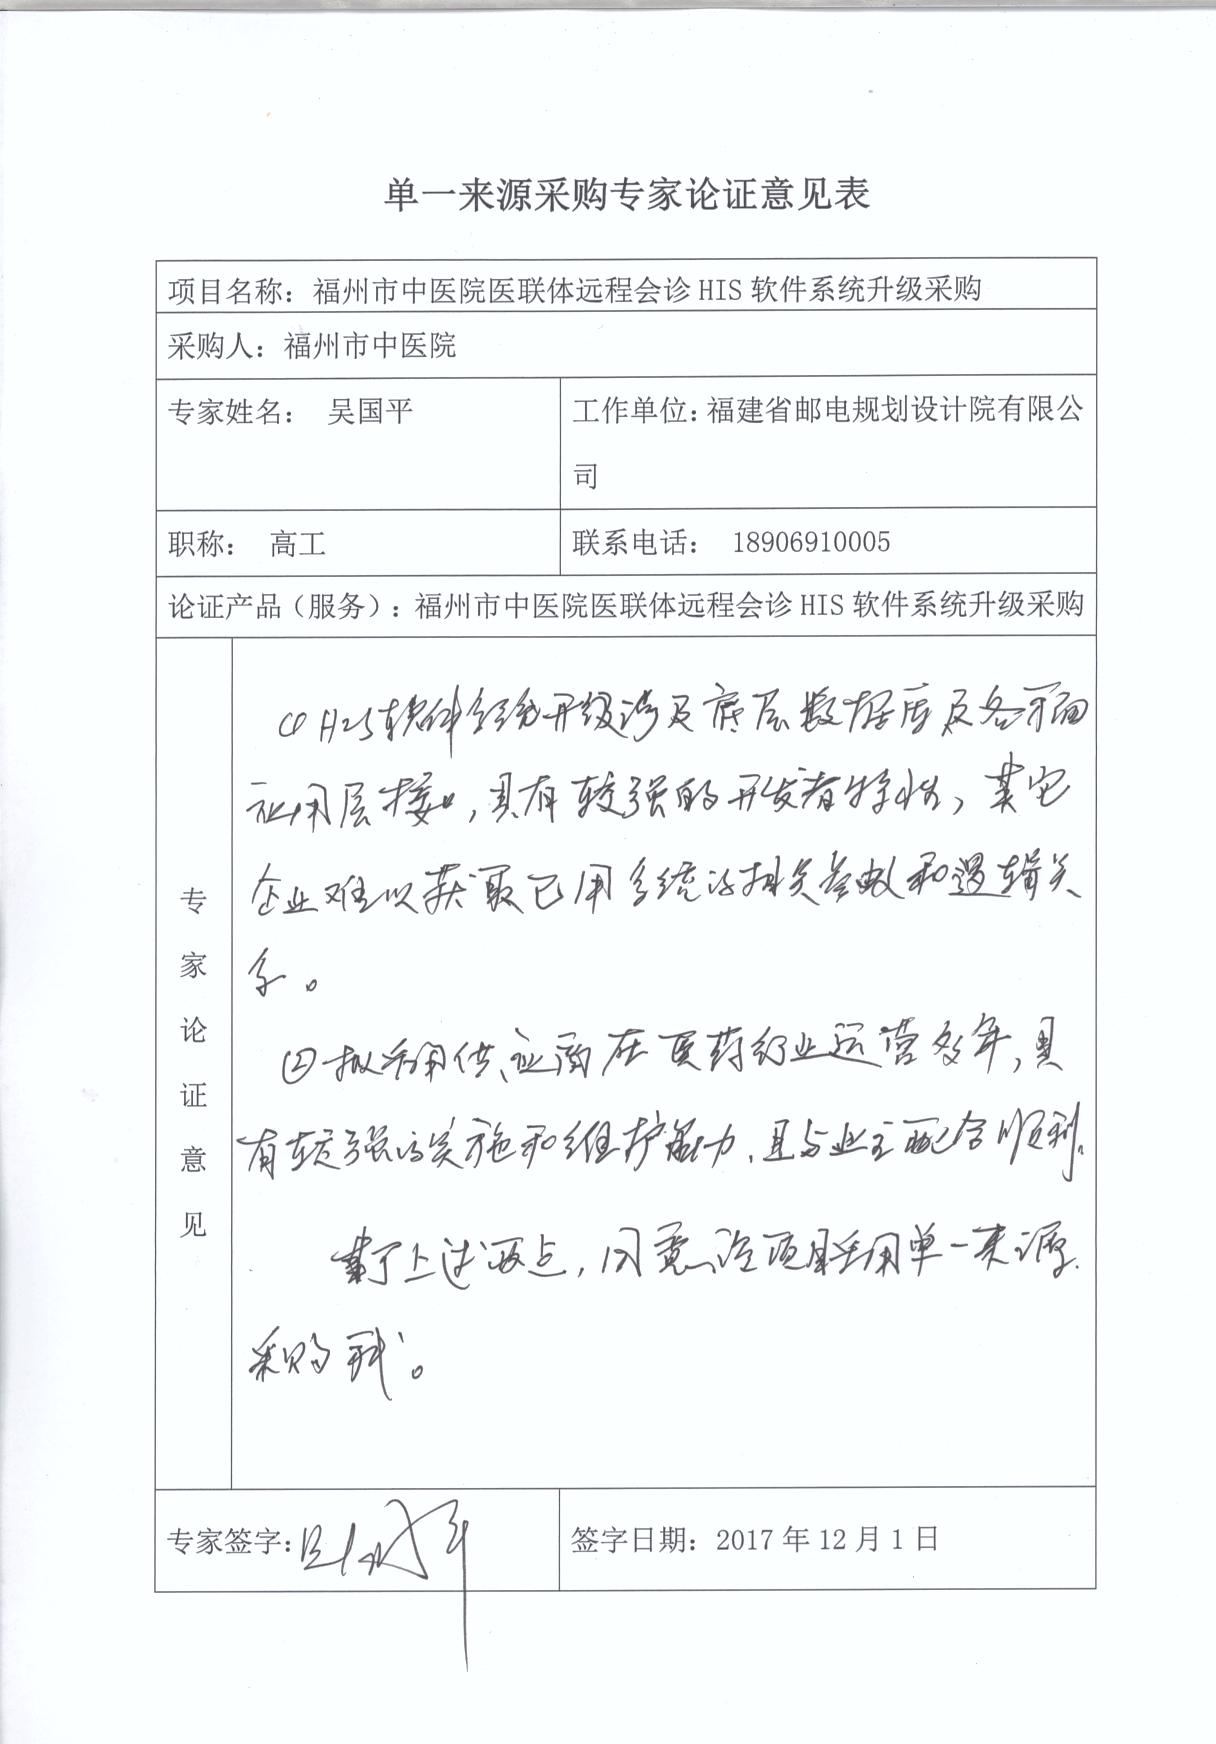 单一来源采购专家论证意见表
项目名称：福州市中医院医联体远程会诊 HIS 软件系统升级采购
采购人：福州市中医院
专家姓名： 吴国平
工作单位：福建省邮电规划设计院有限公
司
职称： 高工
联系电话： 18906910005
论证产品（服务）：福州市中医院医联体远程会诊 HIS 软件系统升级采购
专家论证意见
① HIS软件系统升级涉及底层数据库及各方面
应用层接口，具有较强的开发者特性，其它
企业难以获取已用系统的相关参数和逻辑关
系。
②拟采用供应商在医药行业运营多年，具
有较强的实施和维护能力，且与业主配合顺利。
基于上述两点，同意该项目采用单一来源
采购形式。
专家签字：
签字日期：2017 年 12 月 1 日